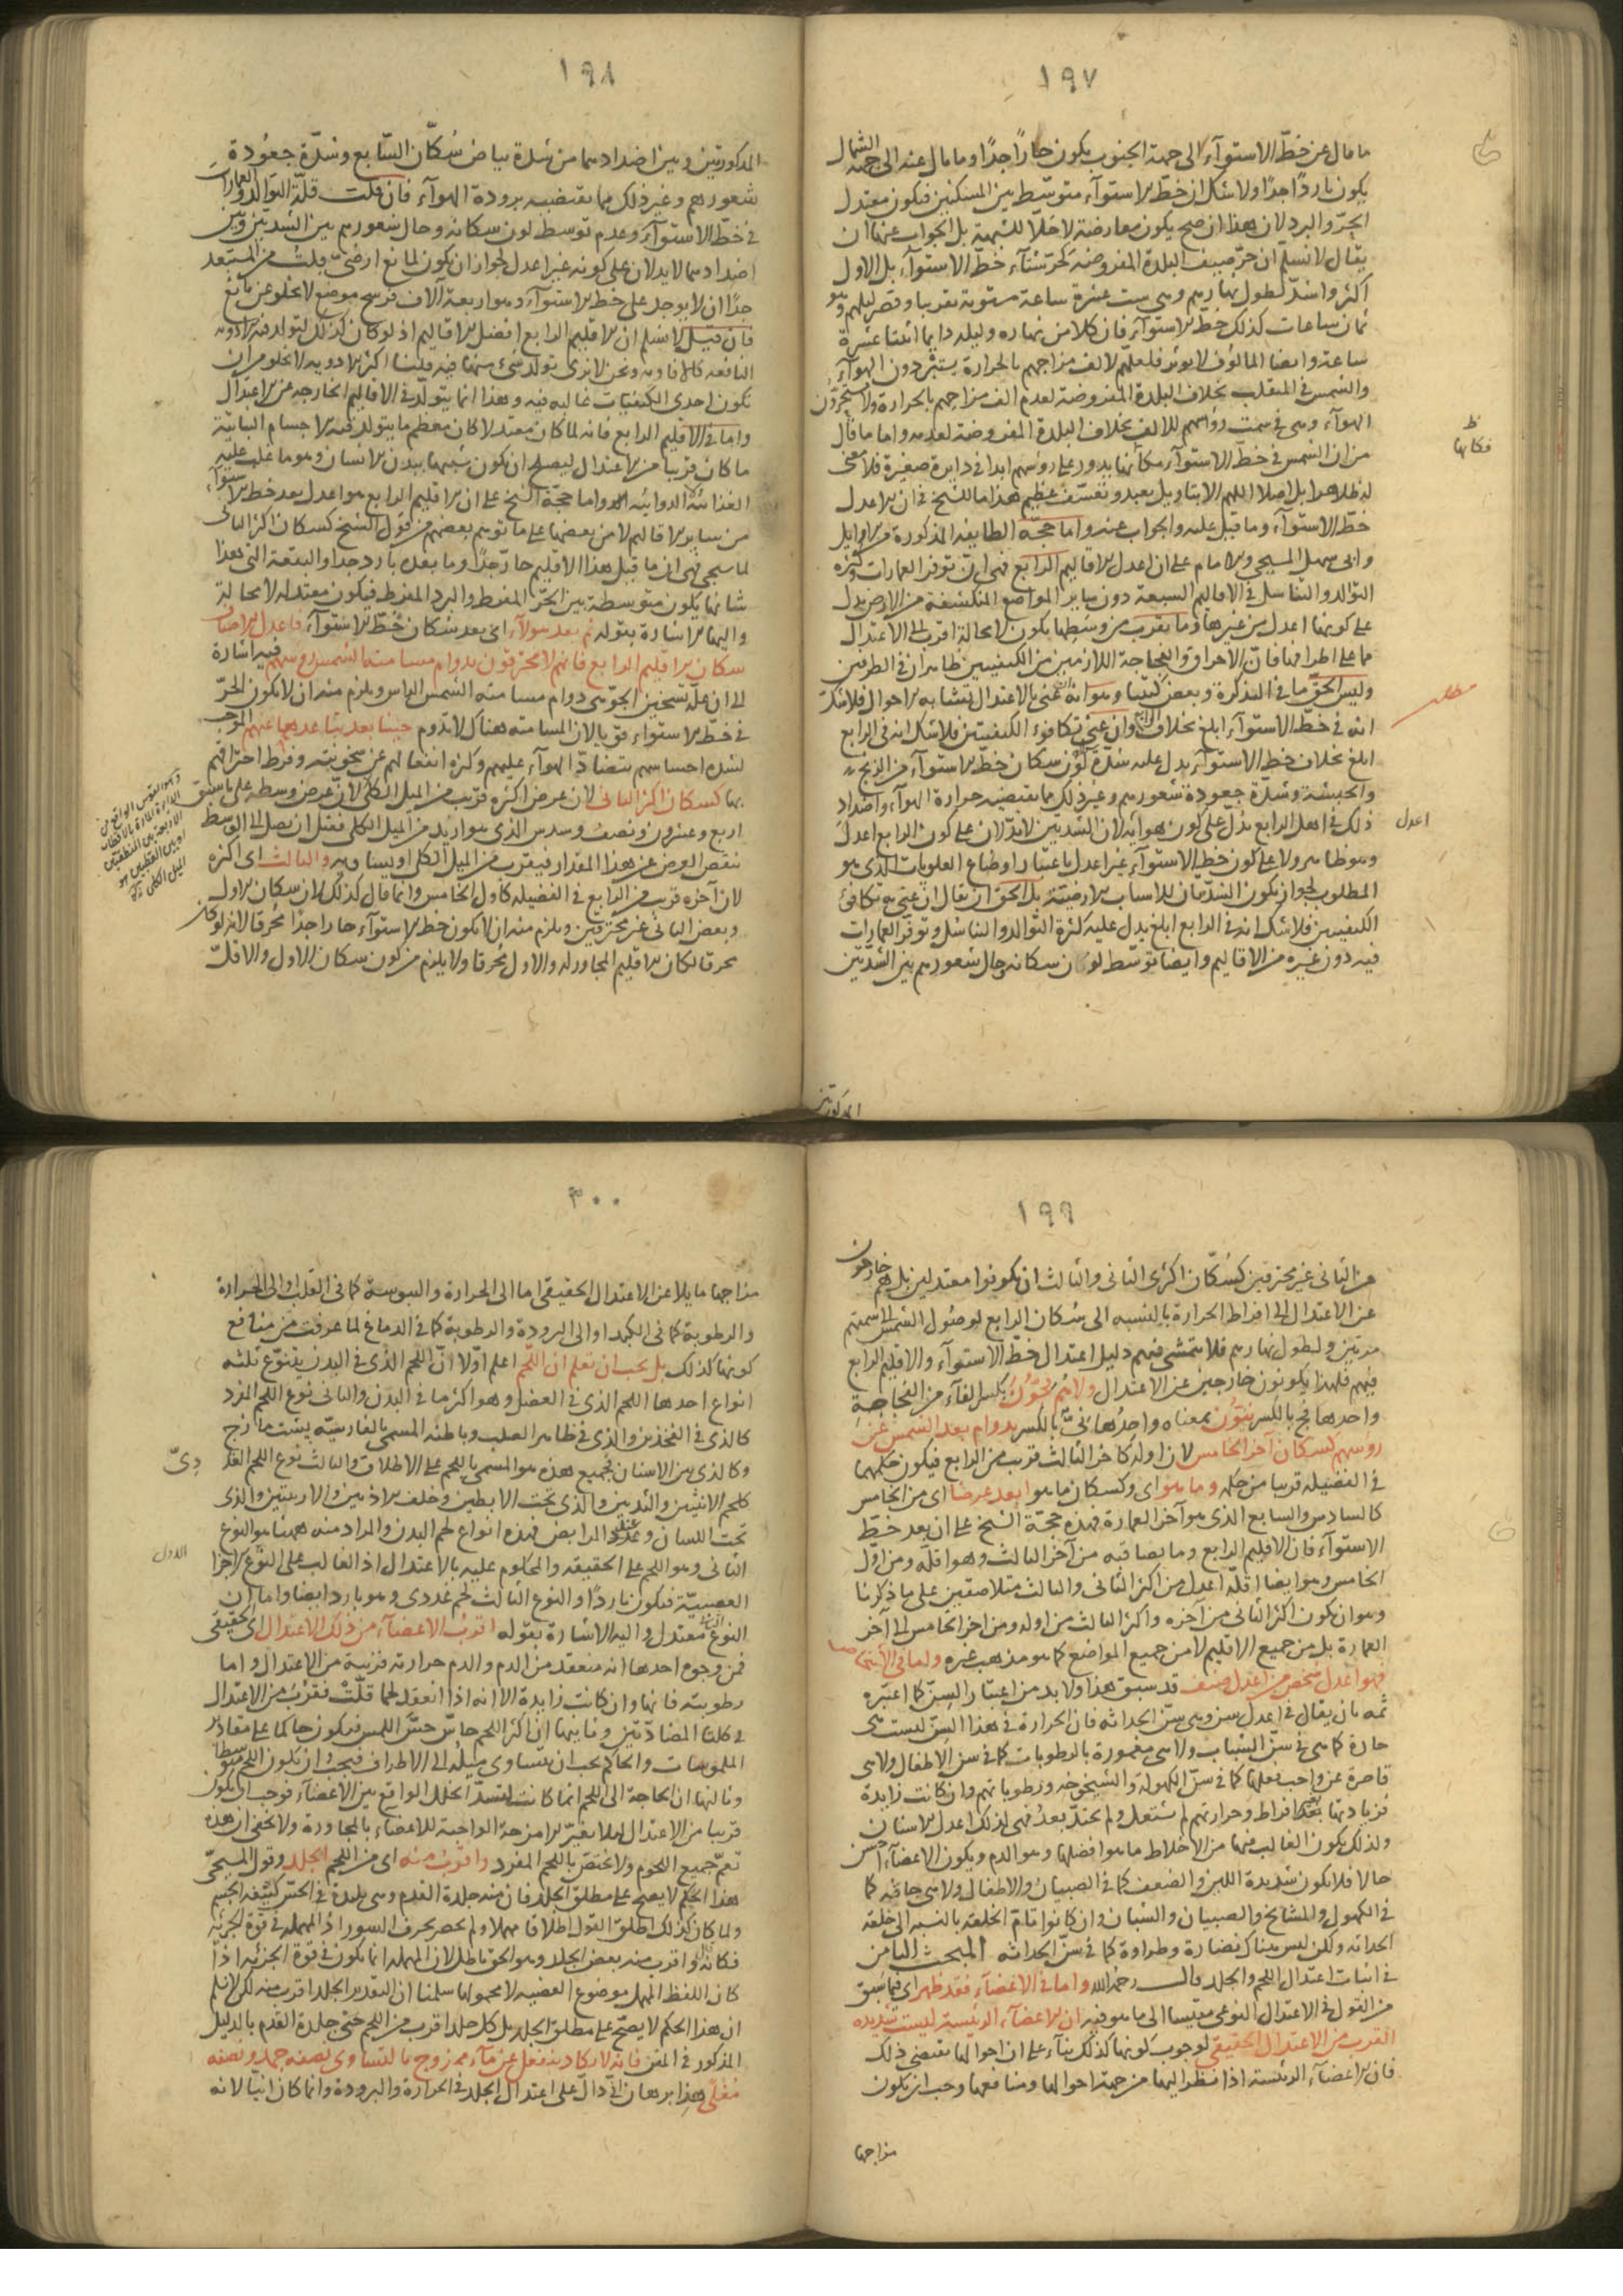 ١٩٧
ما مال عن خطّ الاستوآء الى جهة الجنوب يكون حارًا جدًا وما مال عنه الى جهة الشمال
يكون باردًا جدًا ولا شك ان خطّ الاستوآء متوسّط بين المسكنين فيكون معتدل
الحرّ والبرد لان هذا ان صح يكون معارضة لا حلّا للشبهة بل الجواب عنها ان
يقال لا نسلّم ان حرّ صيف البلدة المفروضة كحرّ شتآء خطّ الاستوآء بل الاول
اكثر واشدّ لطول نهارهم وهى ست عشرة ساعة مستوية تقريبا وقصر ليلهم وهو
ثمان ساعات كذلك خطّ الاستوآء فان كلا من نهاره وليله دايما اثنتا عشرة
ساعة وايضا المالوف لا يوثر فلعلّهم لالف مزاجهم بالحرارة يستبردون الهوآء
والشمس فى المنقلب بخلاف البلدة المفروضة لعدم الف مزاجهم بالحرارة ولا يستحرّون
الهوآء وهى فى سمت رؤسهم للالف بخلاف البلدة المفروضة لعدمه واما ما قال
من ان الشمس فى خطّ الاستوآء مكانها يدور على رؤسهم ابدا فى دايرة صغيرة فلا معنى
له ظاهرا بل اصلا اللهم الا بتاويل بعيد وتعسّف عظيم هذا ما للشيخ فى ان الاعدل
خطّ الاستوآء وما قيل عليه والجواب عنه واما حجّة الطايفة المذكورة من الاوايل
وابى سهل المسيحى والامام على ان اعدل الاقاليم الرابع فهى ان توفر العمارات وكثرة
التوالد والتناسل فى الاقاليم السبعة دون ساير المواضع المنكشفة من الارض يدل
على كونها اعدل من غيرها وما يقرب من وسطها يكون لا محالة اقرب الى الاعتدال
مما على اطرافها فانّ الاحراق والفجاجة اللازمين من الكيفيتين ظاهران فى الطرفين
وليس الحقّ ما فى التذكرة وبعض كتبنا وهو انه ان عنى بالاعتدال تشابه الاحوال فلا شك
انه فى خطّ الاستوآء ابلغ بخلاف الرابع وان عنى تكافوء الكيفيتين فلا شك انه فى الرابع
ابلغ بخلاف خط الاستوآء يدل عليه شدّة لون سكان خطّ الاستوآء من الزنج
والحبشة وشدّة جعودة شعورهم وغير ذلك مما يقتضيه حرارة الهوآء واضداد
ذلك فى اهل الرابع يدلّ على كون هوائه لان الشديتين لا يدّلان على كون الرابع اعدل
وهو ظاهر ولا على كون خط الاستوآء غير اعدل باعتبار اوضاع العلويات الذى هو
المطلوب لجواز كون الشدّتان للاسباب الارضيّة بل الحقّ ان يقال ان عنى به تكافئ
الكيفيتين فلا شك انه فى الرابع ابلغ يدل عليه كثرة التوالد والتناسل وتوفر العمارات
فيه دون غيره من الاقاليم وايضا توسّط لون سكانه وحال شعورهم بين الشدّتين
ظ
فكانها
اعدل
المذكورتين
١٩٨
المذكورتين وبين اضدادهما من شدة بياض سُكّان السّابع وشدّة جعُودة
شعورهم وغير ذلك مما يقتضيه برودة الهوآء فان قلت قلّة التوالد والعمارات
فى خطّ الاستوآء وعدم توسط لون سكانه وحال شعورهم بين الشديتين وبين
اضدادهما لا يدلان على كونه غير اعدل لجواز ان يكون لمانع ارضىّ قلت من المستبعد
جدًا ان لا يوجد على خط الاستوآء وهو اربعة الاف فرسخ موضع لا يخلو عن مانع
فان قيل لا نسلم ان الاقليم الرابع افضل الاقاليم اذ لو كان كذلك لتولد فيه الادوية
النافعة كالافاويه ونحن لا نرى تولد شىء منها فيه قلنا اكثر الادوية لا يخلو من ان
تكون احدى الكيفيات غالبة فيه وهذا انما يتولّد فى الاقاليم الخارجة عن الاعتدال
واما فى الاقليم الرابع فانه لما كان معتدلا كان معظم ما يتولد فيه الاجسام النباتية
ما كان قريبا من الاعتدال ليصلح ان يكون شبيها ببدن الانسان وهو ما غلب عليه
الغذائية الدوائية واما حجّة الشيخ على ان الاقليم الرابع هو اعدل بعد خط الاستوآء
من ساير الاقاليم لا من بعضها على ما توهم بعضهم من قول الشيخ كسكان اكثر الثانى
لما سيجى فهى ان ما قبل هذا الاقليم حارّ جدًا وما بعده بارد جدا والبقعة التى هذا
شانها يكون متوسطة بين الحرّ المفرط والبرد المفرط فيكون معتدله لا محالة
واليها الاشارة بقوله ثم بعد هولآء اى بعد سكان خطّ الاستوآء فاعدل الاصناف
سكان الاقليم الرابع فانهم لا محترقون بدوام مسامتة الشمس رؤسهم فيه اشارة
الى ان علّة تسخين الجوّ هى دوام مسامتة الشمس الراس ويلزم منه ان لا يكون الحرّ
فى خطّ الاستوآء قويا لان المسامتة هناك لا تدوم حينا بعد تباعدها عنهم الموجب
لشدة احساسهم بتضادّ الهوآء عليهم وكثرة انفعالهم عن سخونته وفرط احتراقهم
بها كسكان اكثر الثانى لان عرض اكثره قريب من الميل الكلّى لانّ عرض وسطه على ما سبق
اربع وعشرون ونصف وسدس الذى هو ازيد من الميل الكلى فقبل ان يصل الى الوسط
ينقص العرض عن هذا المقدار فيقرب من الميل الكلى او يساويه والثالث اى اكثره
لان آخره قريب من الرابع فى الفضيله كاول الخامس وانما قال كذلك لان سكان الاول
وبعض الثانى غير محترقين ويلزم منه ان لا يكون خط الاستوآء حارا جدًا محرقا لانه لو كان
محرقا لكان الاقليم المجاور له والاول محرقا ولا يلزم من كون سكان الاول والاقلّ
وهو القوس الواقع من
الدائرة المارة بالاقطاب
الاربعة بين المنطقتين
او بين القطبين هو
الميل الكلى
١٩٩
من الثانى غير محترقين كسُكّان اكثرى الثانى والثالث ان يكونوا معتدلين بل هم خارجون
عن الاعتدال الى افراط الحرارة بالنسبه الى سُكان الرابع لوصُول الشمس الى سمتهم
مرتين ولطول نهارهم فلا يتمشى فيهم دليل اعتدال خطّ الاستوآء والاقليم الرابع
فيهم فلهذا يكونون خارجين عن الاعتدال ولا هُم فجّون بكسر الفآء من الفجاجة
واحدها فج بالكسر نيّون بمعناه واحدُها نىّ بالكسر بدوام بعد الشمس عن
رؤسهم كسكان آخر الخامس لان اوله كاخر الثالث قريب من الرابع فيكون حكمهما
فى الفضيله قريبا من حكمه وما هو اى وكسكان ما هو ابعد عرضا اى من الخامس
كالسادس والسابع الذى هو آخر العمارة فهذه حجّة الشيخ على ان بعد خطّ
الاستوآء فان الاقليم الرابع وما يصاقبه من آخر الثالث وهو اقلّه ومن اوّل
الخامس وهو ايضا اقلّه اعدل من اكثر الثانى والثالث متلاصقين على ما ذكرنا
وهو ان يكون اكثر الثانى من آخره واكثر الثالث من اوله ومن اخر الخامس الى آخر
العمارة بل من جميع الاقليم لا من جميع المواضع كما هو مذهب غيره واما فى الاشخاص
فهو اعدل شخص من اعدل صنف قد سبق هذا ولا بد من اعتبار السنّ كما اعتبره
ثمه بان يقال فى اعدل سن وهى سنّ الحداثه فان الحرارة فى هذا السنّ ليست هى
حادة كما هى فى سنّ الشباب ولا هى مغمورة بالرطوبات كما فى سن الاطفال ولا هى
قاصرة عن واجب فعلها كما فى سنّ الكهولة والشيخوخه ورطوباتهم وان كانت زايدة
فزيادتها بغير افراط وحرارتهم لم تشتعل ولم تحتدّ بعدُ فهى لذلك اعدل الاسنان
ولذلك يكون الغالب فيها من الاخلاط ما هو افضلها وهو الدم ويكون الاعضآء احسن
حالا فلا يكون شديدة اللين والضعف كما فى الصبيان والاطفال ولا هى جافه كما
فى الكهول والمشايخ والصبيان والشبان وان كانوا تامّ الخلقه بالنسبه الى خلقه
الحداثه ولكن ليس هناك نضارة وطراوة كما فى سنّ الحداثه المبحث الثامن
فى اثبات اعتدال اللحم والجلد قال رحمه الله واما فى الاعضآء فقد ظهر اى فيما سبق
من القول فى الاعتدال النوعى مقيسا الى ما هو فيه ان الاعضآء الرئيسة ليست شديدة
القرب من الاعتدال الحقيقى لوجوب كونها كذلك بنآء على ان احوالها تقتضى ذلك
فان الاعضآء الرئيسة اذا نظر اليها من جهة احوالها ومنافعها وجب ان يكون
مزاجها
٢٠٠
مزاجها مايلا عن الاعتدال الحقيقى اما الى الحرارة واليبوسة كما فى القلب او الى الحرارة
والرطوبة كما فى الكبد او الى البرودة والرطوبة كما فى الدماغ لما عرفت من منافع
كونها كذلك بل يجب ان تعلم ان اللحم اعلم اوّلا انّ اللحم الذى فى البدن يتنوّع بثلثه
انواع احدها اللحم الذى فى العضل وهو اكثر ما فى البدن والثانى نوع اللحم المفرد
كالذى فى الفخذين والذى فى ظاهر الصلب وباطنه المسمى بالفارسيّه پشت مازج
وكالذى بين الاسنان فجميع هذه هو المسمى باللحم على الاطلاق والثالث نوع اللحم الغددىّ
كلحم الانثيين والثديين والذى تحت الابطين وخلف الاذنين والاربيتين والذى
تحت اللسان وعند المرابض فهذه انواع لحم البدن والمراد منه ههنا هو النوع
الثانى وهو اللحم على الحقيقه والمحكوم عليه بالاعتدال اذ الغالب على النّوع الاول الاجزا
العصبيّة فيكون باردًا والنوع الثالث لحم غددى وهو بارد ايضا واما ان
النوع الثانى معتدل واليه الاشارة بقوله اقرب الاعضآء من ذلك الاعتدال اى الحقيقى
فمن وجوه احدها انه منعقد من الدم والدم حرارته قريبة من الاعتدال واما
رطوبته فانها وان كانت زايدة الا انه اذا انعقد لحما قلّتْ فقرُبَ من الاعتدال
فى كلتا المضادّتين وثانيها ان اكثر اللحم حاسّ حسّ اللمس فيكون حاكما على مقادير
الملموسات والحاكم يجب ان يتساوى ميله الى الاطراف فيجب ان يكون اللحم متوسطا
وثالثها ان الحاجة الى اللحم انما كانت لتسدّ الخلل الواقع بين الاعضآء فوجب ان يكون
قريبا من الاعتدال لئلا يغيّر الامزجة الواجبة للاعضاء بالمجاورة ولا يخفى ان هذه
تعمّ جميع اللحوم ولا يختص باللحم المفرد واقرب منه اى من اللحم الجلد وقول المسيحّى
هذا الحكم لا يصح على مطلق الجلد فان منه جلدة القدم وهى بليدة فى الحسّ كثيفة الجسم
ولما كان كذلك اطلق القول اطلاقا مهملا ولم يحصر بحرف السور اذ المهملة فى قوة الجزئيّة
فكانّه قال واقرب منه بعض الجلد وهو الحق باطل لان المهملة انما يكون فى قوة الجزئية اذا
كان اللفظ المهمل موضوع القضيه لا محمولها سلمنا ان التقدير الجلد اقرب منه لكن لا نسلم
ان هذا الحكم لا يصحّ على مطلق الجلد بل كل جلد اقرب من اللحم حتى جلدة القدم بالدليل
المذكور فى المتن فانه لا يكاد ينفعل عن مآء ممزوج بالتساوى نصفه جمد ونصفه
مغلّى هذا برهان انّىّ دالّ على اعتدال الجلد فى الحرارة والبرودة وانما كان انّيا لانه